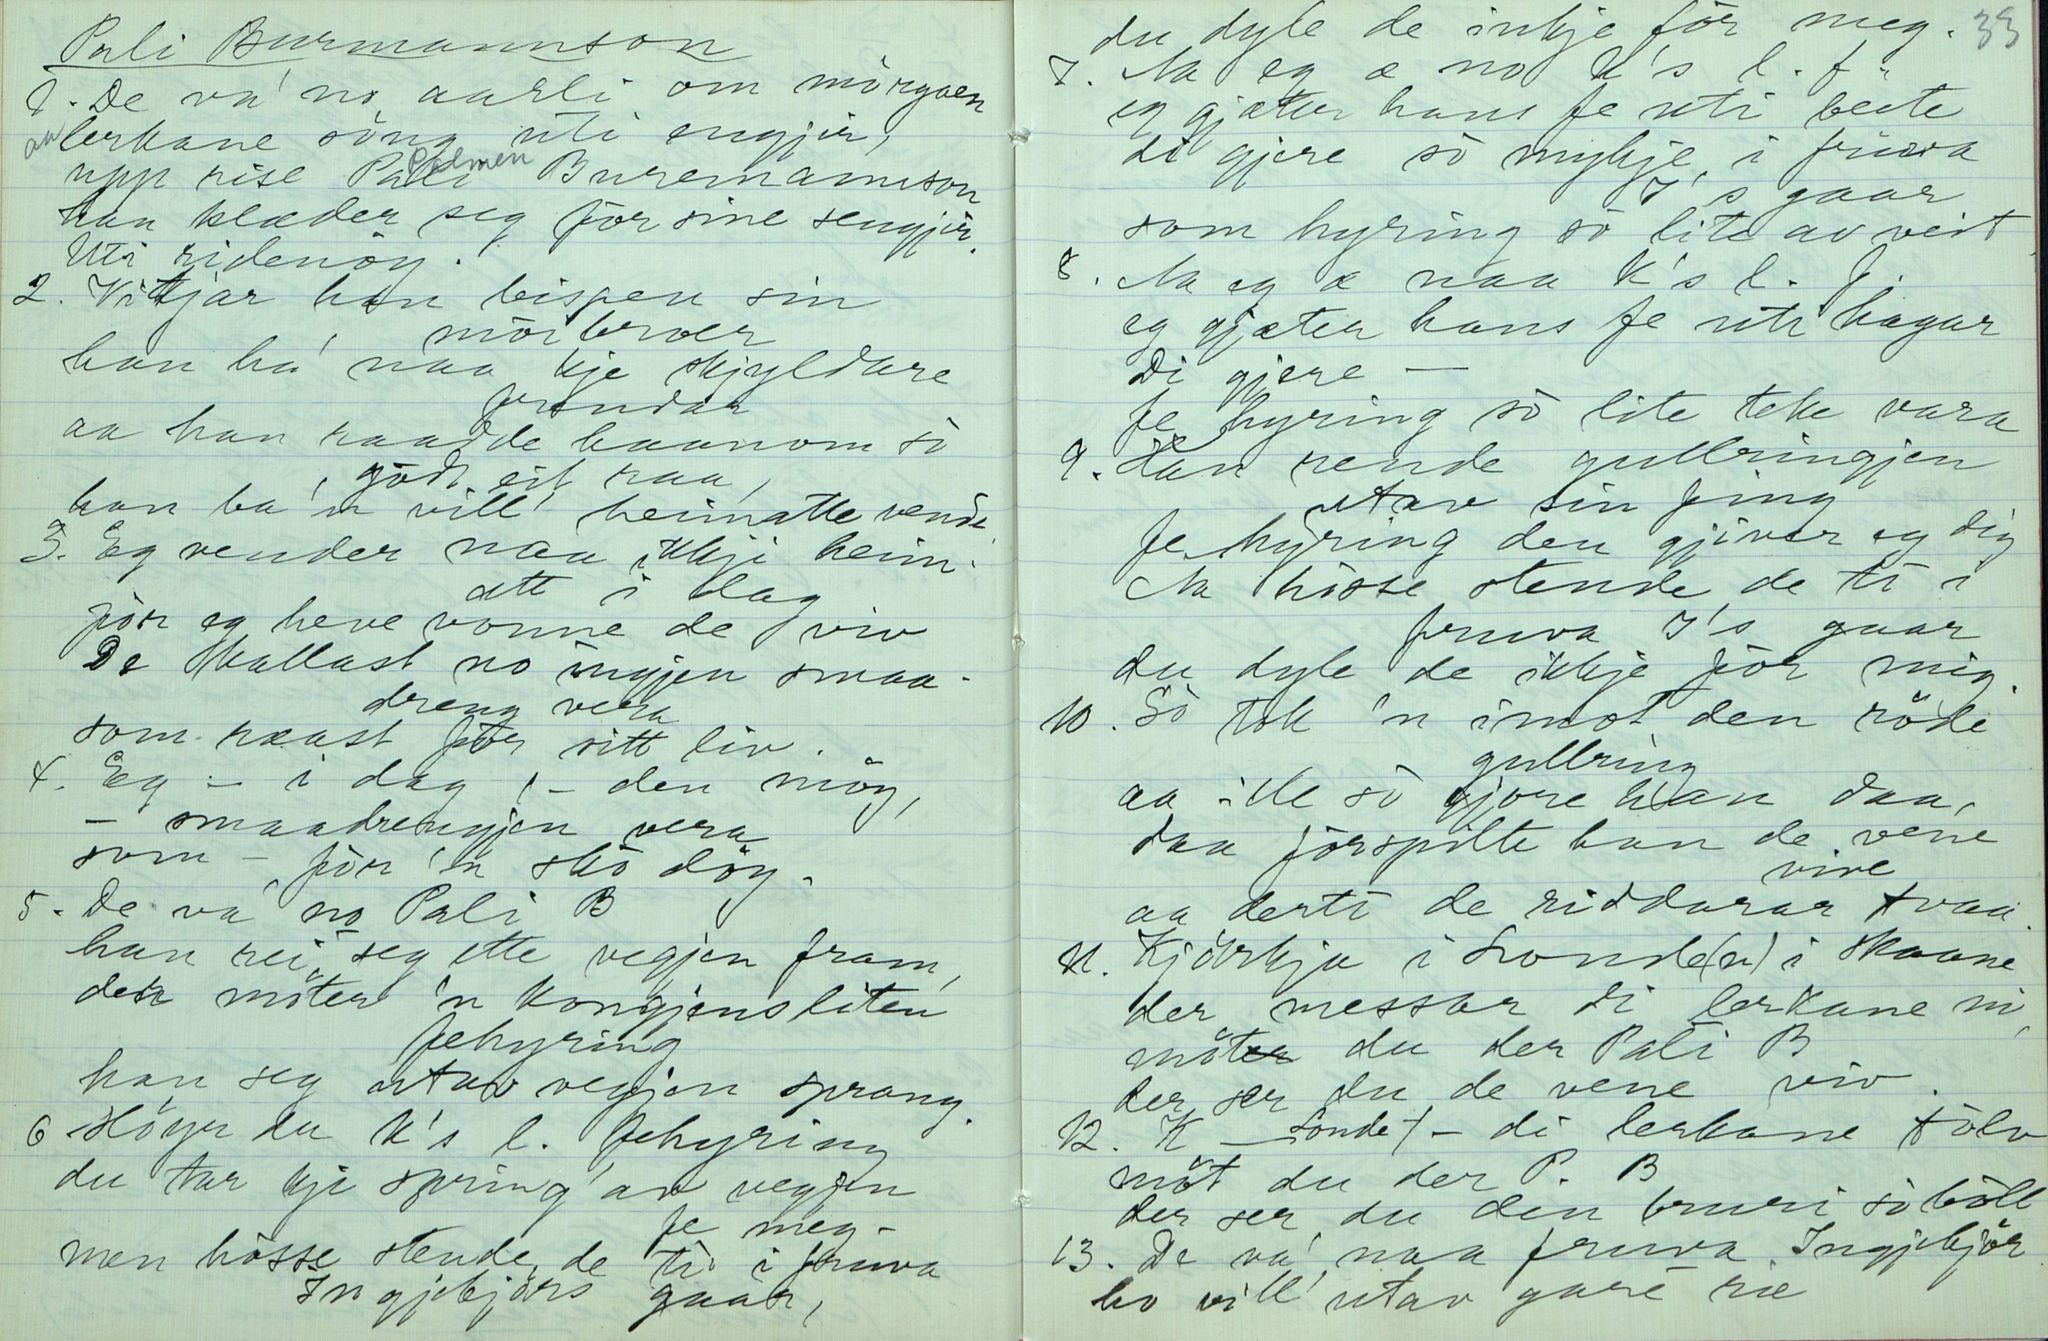 Pali Burmannson
1. De va' no aarli om mòrgoen
aa lerkane sòng uti engjir,
upp rise Pali Buremannson
Palmen
han klæder seg för sine sengjir.
Uti ridenöy.
2. Vitjar han bispen sin
mòrbroer
han ha' naa kje skjyldare
frendar
aa han raadde haanom sò
godt eit raa,
han ba'n vill' heimatte vende.
3. Eg vender naa ikkji heim-
atte i dag
för eg heve vonne de viv
De skallast no ingjen smaa-
dreng vera
som ræast för sitt liv.
4. Eg – i dag, – den möy,
– smaadrengjen vera
som – för'n skò döy.
5. De va' no Pali B
han rei seg ette vegjen fram,
der möter 'n kongjens liten
fehyring
han seg utav vegjen sprang.
6 Höyr du k's l. fehyring
du tar kji spring' av vegjen
fe meg –
men hòsse stende de ti i fruva
Ingjebjörs gaar,
33
du dyle de inkje för meg.
7. Aa eg æ no k's l. f.
eg gjæter hans fe uti beite
di gjere sò mykje i fruva
I's gaar
som hyring sò lite av veit
8. Aa eg æ naa k's l. f.
eg gjæter hans fe uti hagar
Di gjere –
fehyring sò lite teke vara
9. Han rende gullringjen
utav sin fing
fehyring den gjiver eg dig
Aa hòsse stende de ti i
fruva I's gaar
du dyle de ikkje för mig.
10. Sò tok 'n imot den röde
gullring
aa ille sò gjore han daa,
daa förspilte han de vene
vive
aa derti de riddarar tvaa.
11. Kjörkja i Londe(n) i Skaane
der messar di lerkane ni,
möter du der Pali B
der ser du de vene viv.
12. K – Londe) – di lerkane tòlv
möt du der P. B
der ser du den bruri sò bòll
13. De va' naa fruva Ingjebjör
ho vill' utav gare rie